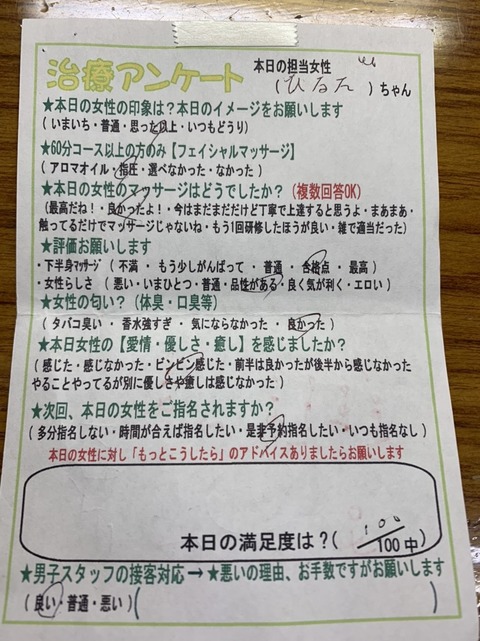 治療アンケート
本日の担当女性
(ひなた)ちゃん
★本日の女性の印象は?本日のイメージをお願いします
(いまいち・普通・思った以上・いつもどうり)
★60分コース以上の方のみ【フェイシャルマッサージ】
(アロマオイル・指圧・選べなかった・なかった)
★本日の女性のマッサージはどうでしたか?(複数回答OK)
(最高だね!・良かったよ!・今はまだまだだけど丁寧で上達すると思うよ・まあまあ・
触ってるだけでマッサージじゃないね・もう1回研修したほうが良い・雑で適当だった)
★評価お願いします
・下半身マッサージ(不満・もう少しがんばって・普通・合格点・最高)
・女性らしさ(悪い・いまひとつ・普通・品性がある・良く気が利く・エロい)
★女性の匂い?(体臭・口臭等)
(タバコ臭い・香水強すぎ・気にならなかった・良かった)
★本日女性の【愛情・優しさ・癒し】を感じましたか?
(感じた・感じなかった・ビンビン感じた・前半は良かったが後半から感じなかった
やることやってるが別に優しさや癒しは感じなかった)
★次回、本日の女性をご指名されますか?
(多分指名しない・時間が合えば指名したい・是非予約指名したい・いつも指名なし)
本日の女性に対し「もっとこうしたら」のアドバイスありましたらお願いします
本日の満足度は?(100/100中)
★男子スタッフの接客対応→★悪いの理由、お手数ですがお願いします
(良い・普通・悪い)( )